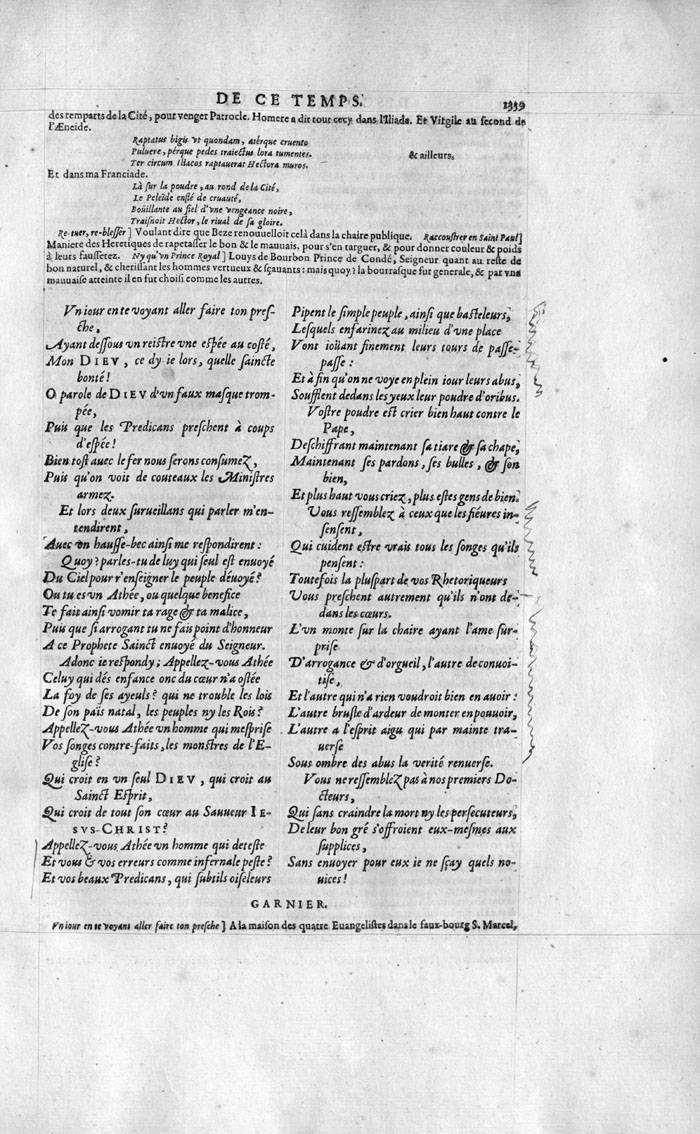 DE CE TEMPS.
1359
des remparts de la Cité, pour venger Patrocle. Homere a dit tout cecy dans l'Iliade. Et Virgile au second de
l'Æneide.
Raptatus bigis vt quondam, atérque cruento
Puluere, pérque pedes traiectus lora tumentes.
& ailleurs.
Ter circum Iliacos raptauerat Hectora muros.
Et dans ma Franciade.
Là sur la poudre, au rond de la Cité,
Le Peleïde enflé de cruauté,
Boüillante au fiel d'vne vengeance noire,
Traisnoit Hector, le riual de sa gloire.
Re-tuer, re-blesser] Voulant dire que Beze renouuelloit celà dans la chaire publique. Raccoustrer en Sainct Paul]
Maniere des Heretiques de rapetasser le bon & le mauuais, pour s'en targuer, & pour donner couleur & poids
à leurs faussetez. Ny qu'vn Prince Royal] Louys de Bourbon Prince de Condé, Seigneur quant au reste de
bon naturel, & cherissant les hommes vertueux & sçauants: mais quoy? la bourrasque fut generale, & par vne
mauuaise atteinte il en fut choisi comme les autres.
Vn iour en te voyant aller faire ton pres-
che,
Ayant dessous vn reistre vne espée au costé,
Mon DIEV, ce dy-ie lors, quelle saincte
bonté!
O parole de DIEV d'vn faux masque trom-
pée,
Puis que les Predicans preschent à coups
d'espée!
Bien tost auec le fer nous serons consumez,
Puis qu'on voit de couteaux les Ministres
armez.
Et lors deux surueillans qui parler m'en-
tendirent,
Auec vn hausse-bec ainsi me respondirent:
Quoy? parles-tu de luy qui seul est enuoyé
Du Ciel pour r'enseigner le peuple déuoyé?
Ou tu es vn Athée, ou quelque benefice
Te fait ainsi vomir ta rage & ta malice,
Puis que si arrogant tu ne fais point d'honneur
A ce Prophete Sainct enuoyé du Seigneur.
Adonc ie respondy; Appellez-vous Athée
Celuy qui dés enfance onc du cœur n'a ostée
La foy de ses ayeuls? qui ne trouble les lois
De son païs natal, les peuples ny les Rois?
Appellez-vous Athée vn homme qui mesprise
Vos songes contre-faits, les monstres de l'E-
glise?
Qui croit en vn seul DIEV, qui croit au
Sainct Esprit,
Qui croit de tout son cœur au Sauueur IE-
SVS-CHRIST?
Appellez-vous Athée vn homme qui deteste
Et vous & vos erreurs comme infernale peste?
Et vos beaux Predicans, qui subtils oiseleurs
Pipent le simple peuple, ainsi que basteleurs,
Lesquels enfarinez au milieu d'vne place
Vont ioüant finement leurs tours de passe-
passe:
Et à fin qu'on ne voye en plein iour leurs abus,
Soufflent dedans les yeux leur poudre d'oribus.
Vostre poudre est crier bien haut contre le
Pape,
Deschiffrant maintenant sa tiare & sa chape,
Maintenant ses pardons, ses bulles, & son
bien,
Et plus haut vous criez, plus estes gens de bien.
Vous ressemblez à ceux que les fiéures in-
sensent,
Qui cuident estre vrais tous les songes qu'ils
pensent:
Toutefois la pluspart de vos Rhetoriqueurs
Vous preschent autrement qu'ils n'ont de-
dans les cœurs.
L'vn monte sur la chaire ayant l'ame sur-
prise
D'arrogance & d'orgueil, l'autre de conuoi-
tise,
Et l'autre qui n'a rien voudroit bien en auoir:
L'autre brusle d'ardeur de monter en pouuoir,
L'autre a l'esprit aigu qui par mainte tra-
uerse
Sous ombre des abus la verité renuerse.
Vous ne ressemblez pas à nos premiers Do-
cteurs,
Qui sans craindre la mort ny les persecuteurs,
De leur bon gré s'offroient eux-mesmes aux
supplices,
Sans enuoyer pour eux ie ne sçay quels no-
uices!
GARNIER.
Vn iour en te voyant aller faire ton presche] A la maison des quatre Euangelistes dans le faux-bourg S. Marcel,